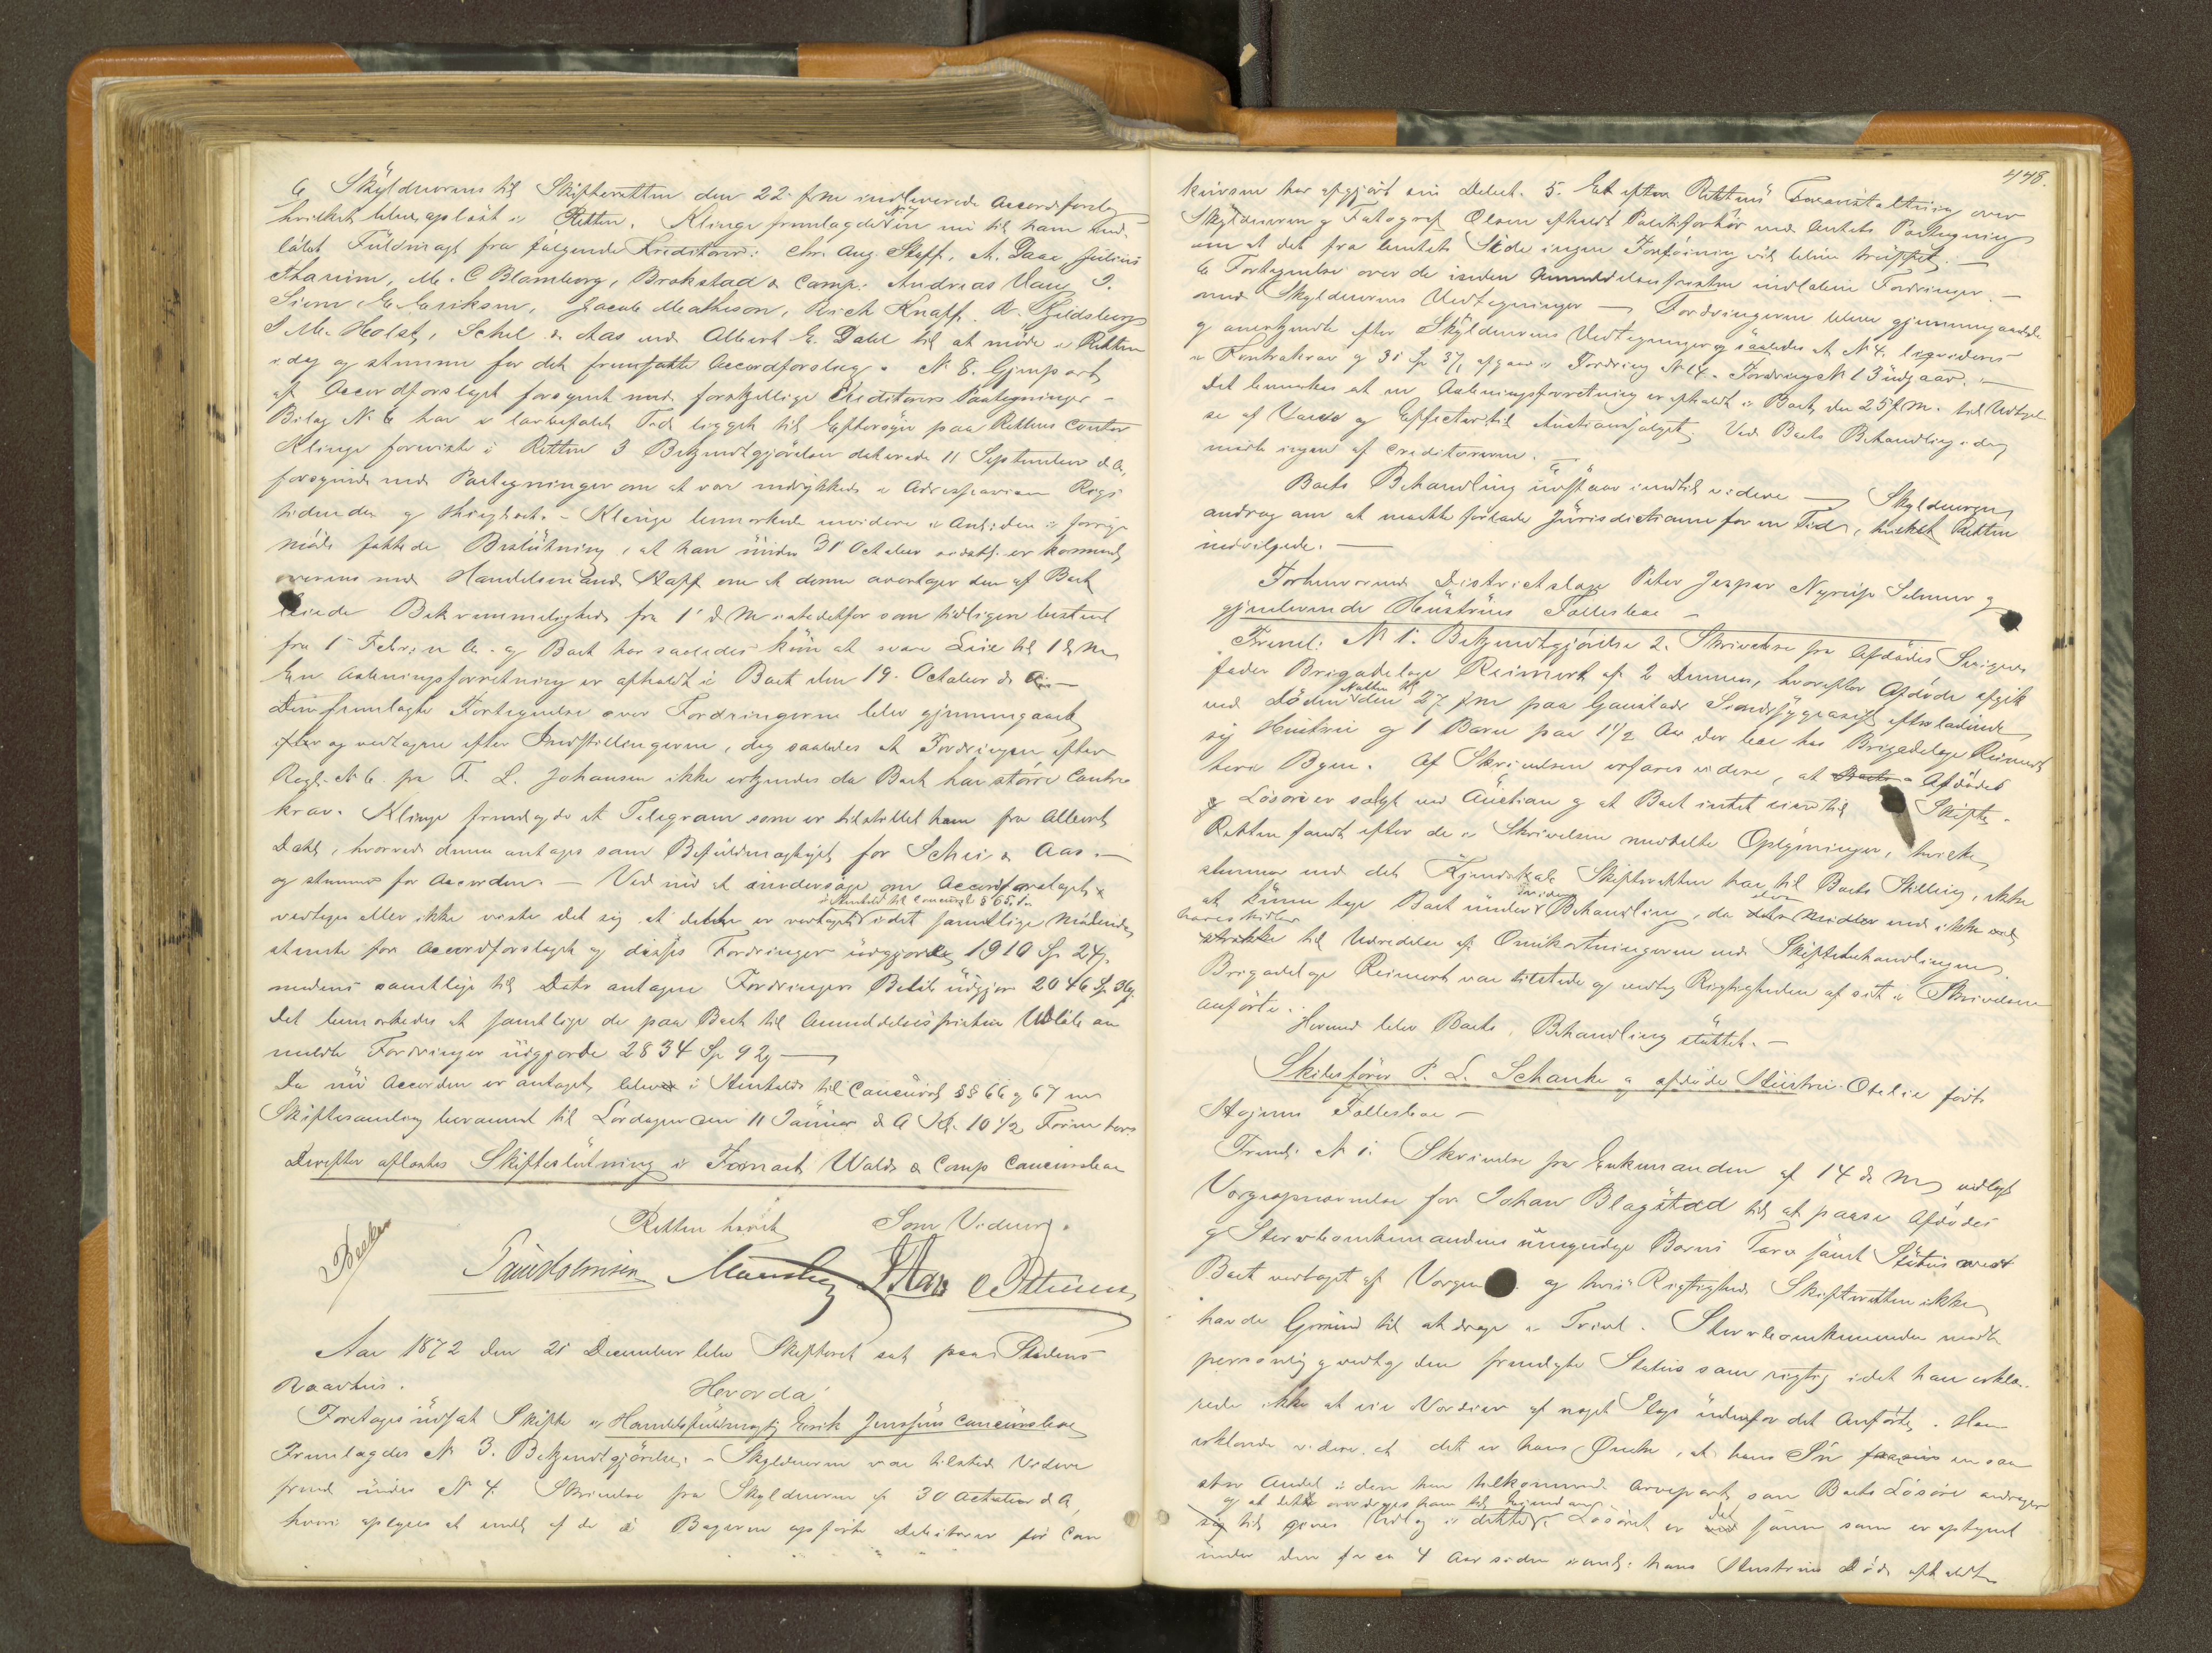 6 Skyldnerens til Skifteretten den 22 f. m. indleverede Accordforslag
hvilket blev oplæst i Retten. Klinge fremlagde No 7 en nu til ham
Fuldmagt fra følgende Kreditorer: Chr. Aug. Stoff, A. Daae, Julius
Thanim, M. C Blomberg, Brokstad & Comp. Andreas Vau, I.
Siem, E. Eriksen, Jacob Matheson, Erich Knaff, R. Gyldsberg
I M. Holst, Schel & Aas ved Albert E. Dahl til at møde i Retten
i dag og stemme for det fremsatte Accordforslag. No 8. Gjenpart
af Accordforslaget forsynet med forskjellige Kreditorers Paategninger -
Bilag No 6 har i lovbefalet Tid ligget til Eftersyn paa Rettens Contor
Klinge foreviste i Retten 3 Bekjendtgjørelser daterede 11 September d. A.
forsynede med Paategninger om at være indrykkede i Adresseavisen Rigs
tidenden og. - Klinge bemærkede envidere i Anledn. i forrige
Møde fattede Beslutning, at han under 31 October er kommet
overens med Handelsmand Staff om at denne overtager den af Boet
leiede Bekvemmelighed fra 1 d M istedetfor som tidligere bestemt
fra 1 Febr. n. A. og Boet har saaledes kun at svare Leie til 1 d. M.
En Auctionsforretning er afholdt i Boet den 19. October d. A. -
Den fremlagte Fortegnelse over Fordringerne blev gjennemgaaet
og vedtagne efter Indstillingerne, dog saaledes at Fordringen efter
Regl. No 6. fra F. L. Johansen ikke erkjendes da Boet har større Contra
krav. Klinge fremlagde et Telegram som er tilstillet ham fra Albert
Dahl, hvorved denne antages som Befuldmægtiget for Schei & Aas. -
og stemmer for Accorden. - Ved nu at undersøge om Accordforslaget
i Henhold til Concursl § 65, 1.
vedtages eller ikke viste det sig at dette er vedtaget idet samtlige Mødende
stemte for Accordforslaget og disses Fordringer udgjorde 1910 Sp 24 ß.
medens samtlige til Dato antagne Fordringers Beløb udgjør 2046 Sp 36 ß.
Det bemærkedes at samtlige de paa Boet til Anmeldelsesfristens Udløb an
meldte Fordringer udgjorde 2834 Sp 92 ß -
Da nu Accorden er antaget, blev i Henhold til Concursl §§ 66 og 67 en
Skiftesamling berammet til Lørdagen den 11 Januar d A Kl. 10 1/2 Form.
Derefter afløstes Skifteslutning i Fornact Wold & Comp Concursboe
Retten hævet
Som Vidner.
Aar 1872 den 21 December blev Skifteret sat paa Stedens
Raadhus.
Hvorda:
Foretoges udsat Skifte i Handelsfuldmægtig Erik Jenssens Concursboe
Fremlagdes No 3. Bekjendtgjørelse. - Skyldneren var tilstede Videre
freml. under No 4. Skrivelse fra Skyldneren af 30 October d A,
hvori oplyses at endel af de i Bøgerne opførte Debitorer før Con
448.
kursen har afgjort sin Debet. 5. Et efter Rettens Foranstaltning over
Skyldneren og Fotograf Olsen afholdt Politiforhør med Amtets Paategning
om at det fra Amtets Side ingen Forføining vil blive truffet. -
6 Fortegnelse over de inden Anmeldelsesfristen indløbne Fordringer. -
med Skyldnerens Vedtegninger - Fordringerne bleve gjennemgaaede
og anerkjendte efter Skyldnerens Vedtegninger og saaledes at No 4. likvideres
i Kontrakrav og 31 Sp 37 ß afgaar i Fordring No 14. Fordring No 13 udgaar. -
Det bemærkes at en Auctionsforretning er afholdt i Boet den 25 f. M. til
se af Varer og Effecter til Auctionssalget; Ved Boets Behandling idag
mødte ingen af Creditorerne. -
Boets Behandling udstaar indtil videre - Skyldneren
androg om at maatte forlade Jurisdictionen for en Tid, hvilket Retten
indvilgede. -
Forhenværende Districtslæge Peter Jesper Nyrup Selmer og
gjenlevende Hustrues Fællesboe -
Freml. No 1. Bekjendtgjørelse 2. Skrivelse fra Afdødes Sviger
fader Brigadelæge Reimert af 2 Dennes, hvorefter Afdøde afgik
ved Døden Natten til den 27 f. m. paa Gaustads Sindssygeasyl efterladende
sig Hustrue og 1 Barn paa 1 1/2 Aar der boe hos Brigadelæge Reimert
her i Byen. Af Skrivelsen erfares videre, at Afdødes
Løsøre er solgt ved Auction og at Boet intet eier til Skifte.
Retten fandt efter de i Skrivelsen meddelte Oplysninger, hvilke
stemmer med det Kjendskab Skifteretten har til Boets Stilling, ikke
at kunne tage Boet under Behandling, da dets Midler end ikke vil
strække til Udredelse af Omkostningerne ved Skiftebehandlingen.
Brigadelæge Reimert var tilstede og vedtog Rigtigheden af sit i Skrivelsen
anførte.
Hermed blev Boets Behandling sluttet. -
Skibsfører P. L. Schanke og afdøde Hustrue Otelie født
Hagens Fællesboe -
Freml. No 1. Skrivelse fra Enkemanden af 14 d. M., vedlagt
Værgeopnævnelse for Johan Blagstad til at paase Afdødes
og Stervboenkemandens umyndige Børns Tarv samt Status over
Boet vedtaget af Værgen og hvis Rigtighed Skifteretten ikke
havde Grund til at drage i Tvivl. Stervboenkemanden mødte
personlig og vedtog den fremlagte Status som rigtig idet han erklæ-
rede ikke at eie Værdier af noget Slags udenfor det Anførte. Han
erklærede videre, at det er hans Ønske, at hans Søn en saa
stor Andel i den ham tilkommende Arvepart, som Boets Løsøre andrager
og at dette overdrages ham til Eiendom
til gives Udlæg i dette. Løsøret er det samme som er optegnet
under den for ca 4 Aar siden hans Hustrues Død afholdte